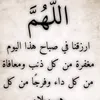 اللَّهُمَّ
ارزقنا في صباح هذا اليوم
مغفرة من كل ذنب ومعافاة
من كل داء وفرجًا من كل